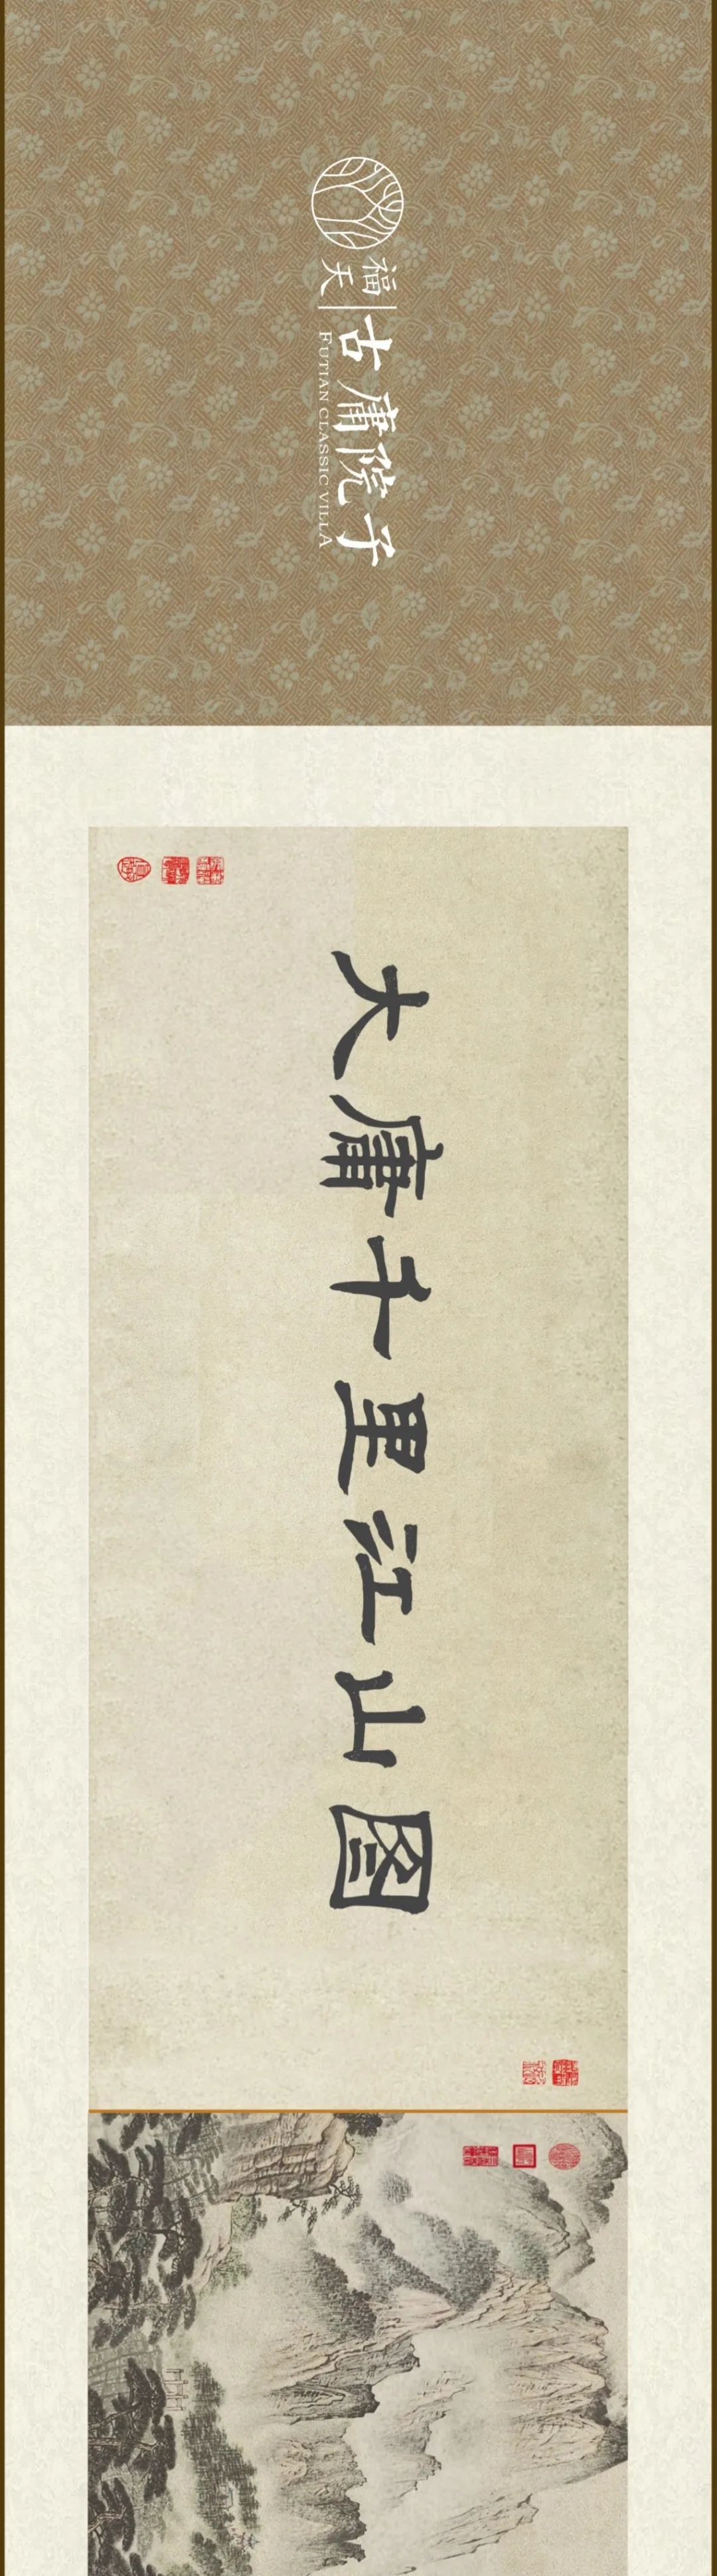 福天
古庸院子
FUTIAN CLASSIC VILLA
大庸千里江山图